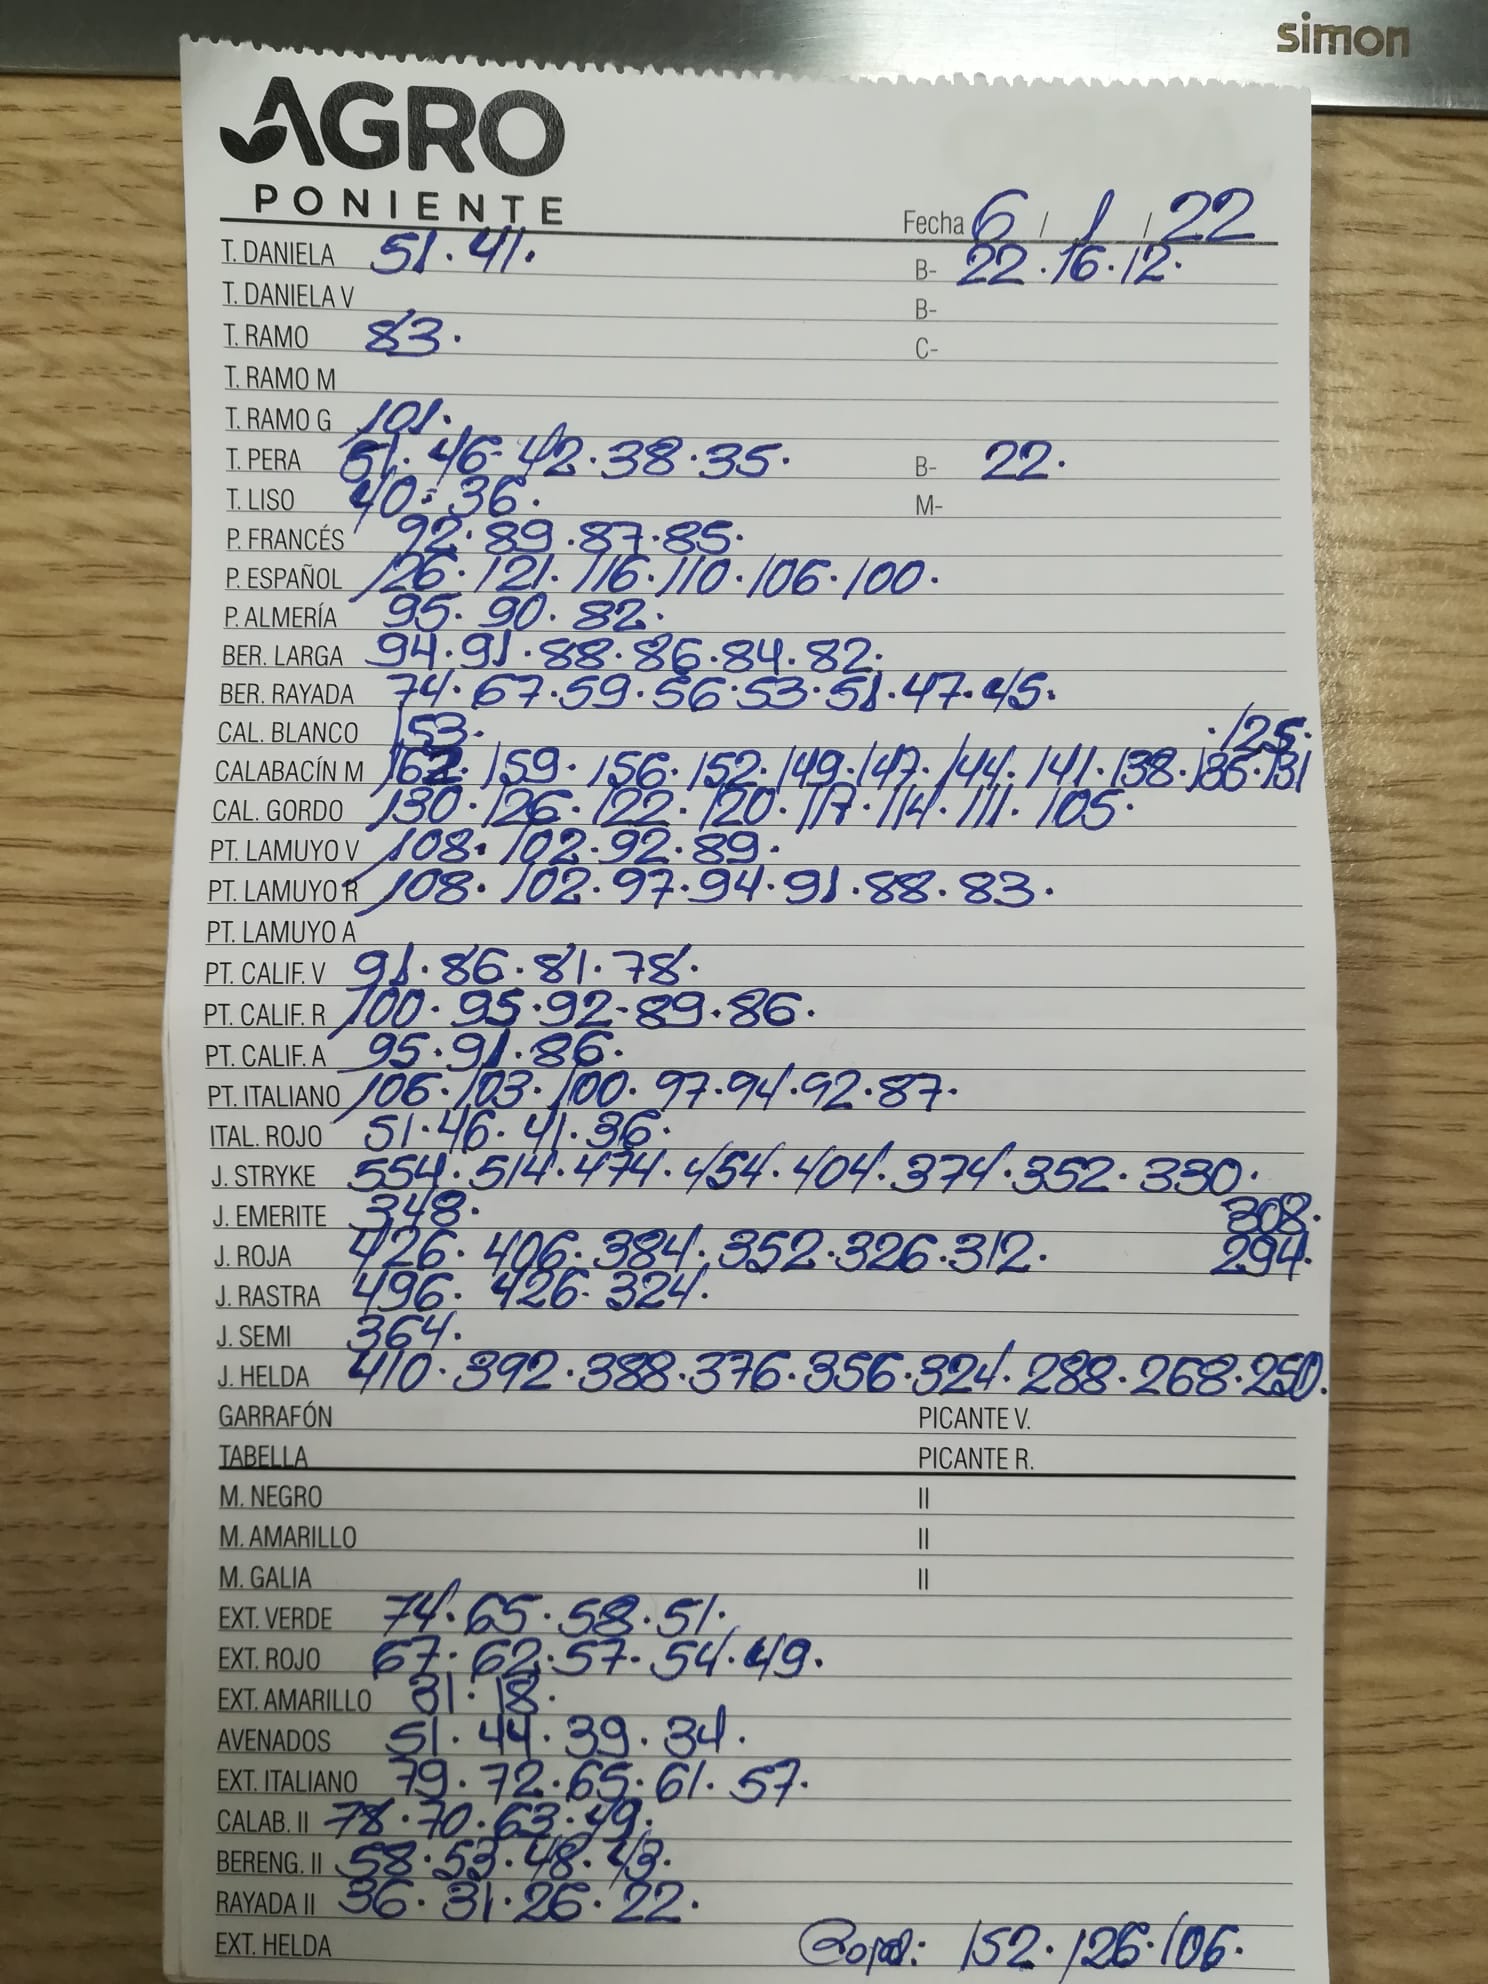 simon
AGRO
PONIENTE
Fecha 6 / 1 / 22
T. DANIELA 51 · 41 · B- 22 · 16 · 12 ·
T. DANIELA V B-
T. RAMO 83 · C-
T. RAMO M
T. RAMO G 101 ·
T. PERA 51 · 46 · 42 · 38 · 35 · B- 22 ·
T. LISO 40 · 36 · M-
P. FRANCÉS 92 · 89 · 87 · 85 ·
P. ESPAÑOL 126 · 121 · 116 · 110 · 106 · 100 ·
P. ALMERÍA 95 · 90 · 82 ·
BER. LARGA 94 · 91 · 88 · 86 · 84 · 82 ·
BER. RAYADA 74 · 67 · 59 · 56 · 53 · 51 · 47 · 45 ·
CAL. BLANCO 153 · · 125 ·
CALABACÍN M 162 · 159 · 156 · 152 · 149 · 147 · 144 · 141 · 138 · 136 · 131
CAL. GORDO 130 · 126 · 122 · 120 · 117 · 114 · 111 · 105 ·
PT. LAMUYO V 108 · 102 · 92 · 89 ·
PT. LAMUYO R 108 · 102 · 97 · 94 · 91 · 88 · 83 ·
PT. LAMUYO A
PT. CALIF. V 91 · 86 · 81 · 78 ·
PT. CALIF. R 100 · 95 · 92 - 89 · 86 ·
PT. CALIF. A 95 · 91 · 86 ·
PT. ITALIANO 106 · 103 · 100 · 97 · 94 · 92 · 87 ·
ITAL. ROJO 51 · 46 · 41 · 36 ·
J. STRYKE 554 · 514 · 474 · 454 · 404 · 374 · 352 · 330 ·
J. EMERITE 348 · 308 ·
J. ROJA 426 · 406 · 384 · 352 · 326 · 312 · 294 ·
J. RASTRA 496 · 426 · 324 ·
J. SEMI 364 ·
J. HELDA 410 · 392 · 388 · 376 · 356 · 324 · 288 · 268 · 250 ·
GARRAFÓN PICANTE V.
TABELLA PICANTE R.
M. NEGRO II
M. AMARILLO II
M. GALIA II
EXT. VERDE 74 · 65 · 58 · 51 ·
EXT. ROJO 67 · 62 · 57 · 54 · 49 ·
EXT. AMARILLO 31 · 18 ·
AVENADOS 51 · 44 · 39 · 34 ·
EXT. ITALIANO 79 · 72 · 65 · 61 · 57 ·
CALAB. II 78 · 70 · 63 · 49 ·
BERENG. II 58 · 53 · 48 · 43 ·
RAYADA II 36 · 31 · 26 · 22 ·
EXT. HELDA 152 · 126 · 106 ·